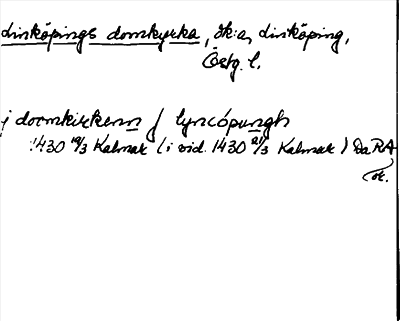 Linköpings domkyrka, sk:a, Linköping,
Östg. l.
j doomkirkenn j lyncópungh
1430 19/3 Kalmar (i vid. 1430 21/3 Kalmar) Da RA
or.